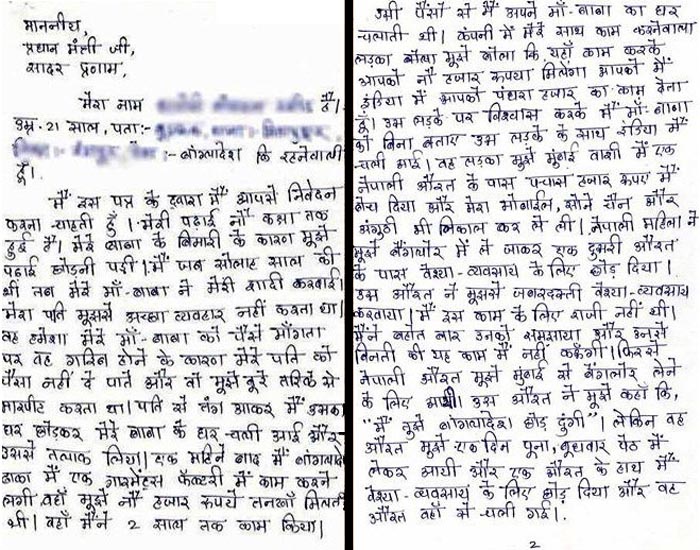 माननीय,
प्रधान मंत्री जी,
सादर प्रणाम,
मेरा नाम है।
उम्र. 21 साल, पता:-
:- बांग्लादेश कि रहनेवाली
हूँ।
मैं इस पत्र के द्वारा मैं आपसे निवेदन
करना चाहती हूँ। मेरी पढ़ाई नौ कक्षा तक
हुई है। मेरे बाबा के बिमारी के कारण मुझे
पढाई छोड़नी पड़ी। मैं जब सोलाह साल की
थी तब मेरे माँ-बाबा ने मेरी शादी करवाई।
मेरा पति मुझसे अच्छा व्यवहार नहीं करता था।
वह हमेशा मेरे माँ-बाबा को पैसे माँगता
पर वह गरिब होने के कारण मेरे पति को
पैसा नहीं दे पाते और वो मुझे बूरे तरिके से
मारपीट करता था। पति से तंग आकर मैं उसका
घर छोड़कर मेरे बाबा के घर चली आई और
उससे तलाक लिया। एक महिने बाद मैं बांग्लादेश
ढाका में एक गारमेंट्स फॅक्टरी में काम करने
लगी वहाँ मुझे नौ हजार रूपये तनखाँ मिलती
थी। वहाँ मैंने 2 साल तक काम किया।
उसी पैसों से मैं अपने माँ-बाबा का घर
चलाती थी। कंपनी में मेरे साथ काम करनेवाला
लड़का मुझे बोला कि, यहाँ काम करके
आपको नौ हजार रूपया मिलेगा आपको मैं
इंडिया में आपको पंधरा हजार का काम देता
हूँ। उस लड़के पर विश्वास करके मैं माँ-बाबा
को बिना बताए उस लड़के के साथ इंडिया में
चली आई। वह लड़का मुझे मुंबई वाशी में एक
नेपाली औरत के पास पचास हजार रूपए में
बेच दिया और मेरा मोबाईल, सोने चैन और
अंगुठी भी निकाल कर ले ली। नेपाली महिला ने
मुझे बैंगलोर में ले जाकर एक दुसरी औरत
के पास वेश्या-व्यवसाय के लिए छोड़ दिया।
उस औरत ने मुझसे जबरदस्ती वेश्या-व्यवसाय
करवाया। मैं इस काम के लिए राजी नहीं थी।
मैंने बहोत बार उनको समझाया और उनसे
बिनती की यह काम मैं नहीं करूँगी। फिरसे
नेपाली औरत मुझे मुंबई से बैंगलोर लेने
के लिए आयी। उस औरत ने मुझे कहाँ कि,
"मैं तुझे बांग्लादेश छोड़ दुंगी"। लेकिन वह
औरत मुझे एक दिन पूना, बूधवार पेठ में
लेकर आयी और एक औरत के हाथ में
वेश्या-व्यवसाय के लिए छोड़ दिया और वह
औरत वहाँ से चली गई।
2